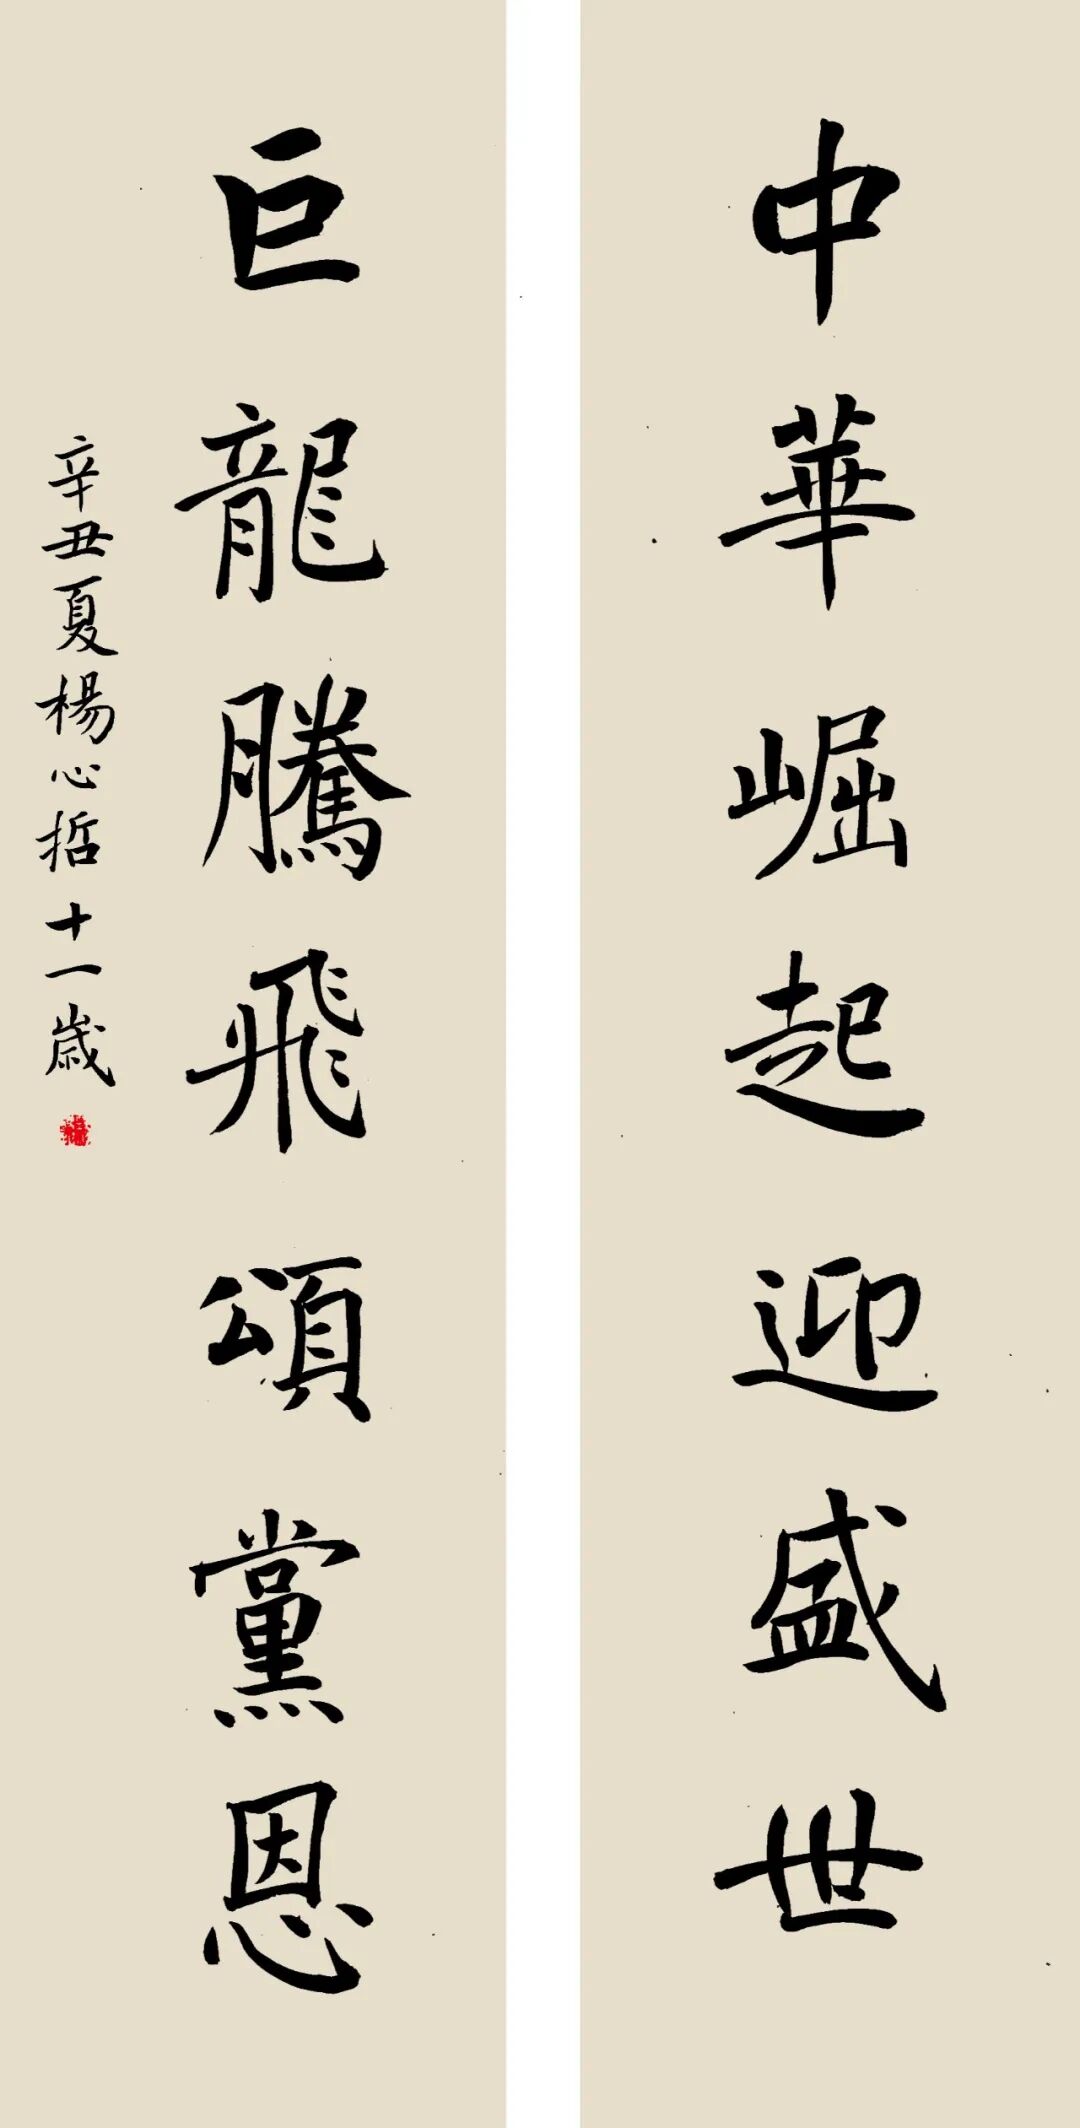 中華崛起迎盛世
巨龍騰飛頌黨恩
辛丑夏楊心哲十一歲